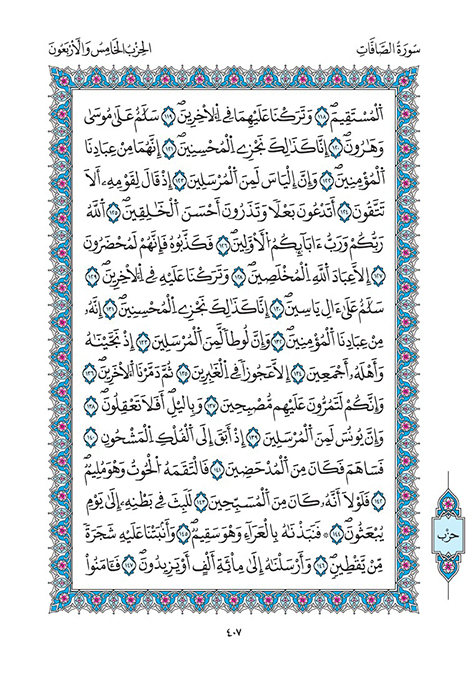 سُورَةُ الصَّافَّاتِ
الحِزْبُ الخَامِسُ وَالأَرْبَعُونَ
اَلْمُسْتَقِيمَ ١١٨ وَتَرَكْنَا عَلَيْهِمَا فِي اِلَاخِرِينَ ١١٩ سَلَٰمٌ عَلَىٰ مُوسَىٰ
وَهَٰرُونَ ١٢٠ إِنَّا كَذَٰلِكَ نَجْزِي اِلْمُحْسِنِينَ ١٢١ إِنَّهُمَا مِنْ عِبَادِنَا
اَلْمُؤْمِنِينَ ١٢٢ وَإِنَّ إِلْيَاسَ لَمِنَ اَلْمُرْسَلِينَ ١٢٣ إِذْ قَالَ لِقَوْمِهِ أَلَا
تَتَّقُونَ ١٢٤ أَتَدْعُونَ بَعْلًا وَتَذَرُونَ أَحْسَنَ اَلْخَٰلِقِينَ ١٢٥ اَللَّهُ
رَبُّكُمْ وَرَبُّ ءَابَآئِكُمُ اُلْأَوَّلِينَ ١٢٦ فَكَذَّبُوهُ فَإِنَّهُمْ لَمُحْضَرُونَ
١٢٧ إِلَّا عِبَادَ اَللَّهِ اِلْمُخْلَصِينَ ١٢٨ وَتَرَكْنَا عَلَيْهِ فِي اِلَاخِرِينَ ١٢٩
سَلَٰمٌ عَلَىٰ ءَالِ يَاسِينَ ١٣٠ إِنَّا كَذَٰلِكَ نَجْزِي اِلْمُحْسِنِينَ ١٣١ إِنَّهُۥ
مِنْ عِبَادِنَا اَلْمُؤْمِنِينَ ١٣٢ وَإِنَّ لُوطًا لَّمِنَ اَلْمُرْسَلِينَ ١٣٣ إِذْ نَجَّيْنَٰهُ
وَأَهْلَهُۥ أَجْمَعِينَ ١٣٤ إِلَّا عَجُوزًا فِي اِلْغَٰبِرِينَ ١٣٥ ثُمَّ دَمَّرْنَا اَلَاخَرِينَ ١٣٦
وَإِنَّكُمْ لَتَمُرُّونَ عَلَيْهِم مُّصْبِحِينَ ١٣٧ وَبِاليْلِ أَفَلَا تَعْقِلُونَ ١٣٨
وَإِنَّ يُونُسَ لَمِنَ اَلْمُرْسَلِينَ ١٣٩ إِذْ أَبَقَ إِلَى اَلْفُلْكِ اِلْمَشْحُونِ ١٤٠
فَسَاهَمَ فَكَانَ مِنَ اَلْمُدْحَضِينَ ١٤١ فَالْتَقَمَهُ اُلْحُوتُ وَهُوَ مُلِيمٌ
١٤٢ فَلَوْلَا أَنَّهُۥ كَانَ مِنَ اَلْمُسَبِّحِينَ ١٤٣ لَلَبِثَ فِي بَطْنِهِ إِلَىٰ يَوْمِ
يُبْعَثُونَ ١٤٤ فَنَبَذْنَٰهُ بِالْعَرَآءِ وَهُوَ سَقِيمٌ ١٤٥ وَأَنۢبَتْنَا عَلَيْهِ شَجَرَةً
مِّنْ يَّقْطِينٍ ١٤٦ وَأَرْسَلْنَٰهُ إِلَىٰ مِاْئَةِ أَلْفٍ أَوْ يَزِيدُونَ ١٤٧ فَـَٔامَنُواْ
حزب
٤٠٧